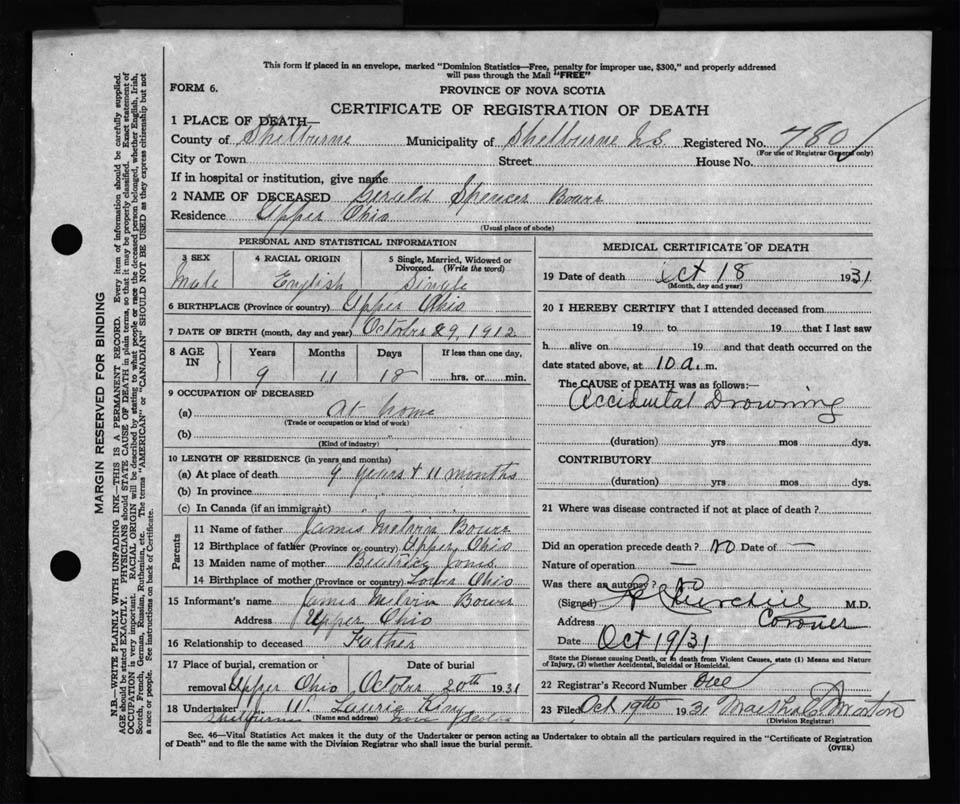 This form if placed in an envelope, marked "Dominion Statistics—Free, penalty for improper use, $300," and properly addressed
will pass through the Mail "FREE"
FORM 6.
PROVINCE OF NOVA SCOTIA
CERTIFICATE OF REGISTRATION OF DEATH
1 PLACE OF DEATH—
County of Shelburne Municipality of Shelburne N.S Registered No. 780
(For use of Registrar General only)
City or Town Street House No.
If in hospital or institution, give name
2 NAME OF DECEASED Gerald Spencer Bower
Residence Upper Ohio
(Usual place of abode)
PERSONAL AND STATISTICAL INFORMATION
3 SEX 4 RACIAL ORIGIN 5 Single, Married, Widowed or
Divorced. (Write the word)
Male English Single
6 BIRTHPLACE (Province or country) Upper Ohio
7 DATE OF BIRTH (month, day and year) October 29, 1912
8 AGE IN Years Months Days If less than one day,
9 11 18 hrs. or min.
9 OCCUPATION OF DECEASED
(a) at home
(Trade or occupation or kind of work)
(b)
(Kind of industry)
10 LENGTH OF RESIDENCE (in years and months)
(a) At place of death 9 years + 11 months
(b) In province " "
(c) In Canada (if an immigrant) "
Parents
11 Name of father James Melvin Bower
12 Birthplace of father (Province or country) Upper Ohio
13 Maiden name of mother Beatrice Jones
14 Birthplace of mother (Province or country) Lower Ohio
15 Informant's name James Melvin Bower
Address Upper Ohio
16 Relationship to deceased Father
17 Place of burial, cremation or Date of burial
removal Upper Ohio October 20th 1931
18 Undertaker Laurie King
(Name and address)
Shelburne Nova Scotia
MEDICAL CERTIFICATE OF DEATH
19 Date of death Oct 18 1931
(Month, day and year)
20 I HEREBY CERTIFY that I attended deceased from
19 to 19 that I last saw
h alive on 19 and that death occurred on the
date stated above, at 10 a. m.
The CAUSE of DEATH was as follows:—
Accidental Drowning
(duration) yrs mos dys.
CONTRIBUTORY
(duration) yrs mos dys.
21 Where was disease contracted if not at place of death?
Did an operation precede death? No Date of —
Nature of operation —
Was there an autopsy? no
(Signed) Churchill M.D.
Address Coroner
Date Oct 19/31
State the Disease causing Death, or in death from Violent Causes, state (1) Means and Nature
of Injury, (2) whether Accidental, Suicidal or Homicidal.
22 Registrar's Record Number One
23 Filed Oct 19th 1931 Marshall Morton
(Division Registrar)
Sec. 46—Vital Statistics Act makes it the duty of the Undertaker or person acting as Undertaker to obtain all the particulars required in the "Certificate of Registration
of Death" and to file the same with the Division Registrar who shall issue the burial permit.
(OVER)
MARGIN RESERVED FOR BINDING
N.B.—WRITE PLAINLY WITH UNFADING INK—THIS IS A PERMANENT RECORD. Every item of information should be carefully supplied.
AGE should be stated EXACTLY. PHYSICIANS should STATE CAUSE OF DEATH in plain terms, so that it may be properly classified. Exact statement of
OCCUPATION is very important. RACIAL ORIGIN will be described by stating to what people or race the deceased person belonged, whether English, Irish,
Scotch, French, German, Russian, Ruthenian, etc. The terms "AMERICAN" or "CANADIAN" SHOULD NOT BE USED as they express citizenship but not
a race or people. See instructions on back of Certificate.